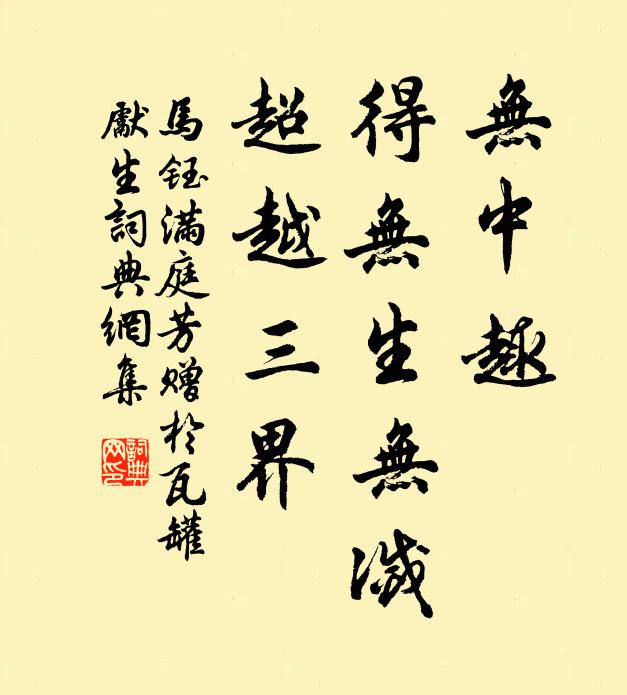 無中趣
得無生無滅
超越三界
馬鈺滿庭芳贈於瓦罐
獻生詞典網集
詞典網印